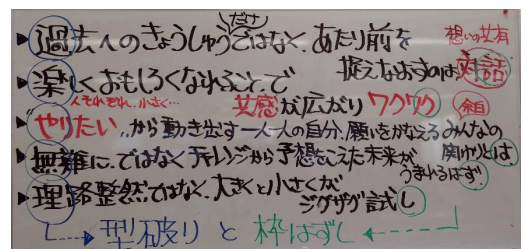 ださ
▶過去へのきょうしゅうではなく、あたり前を
想いの共有
捉えなおすのは対話
▶楽しくおもしろくなれることで
人それぞれ、小さく…
共感が広がりワクワク
▶"やりたい"から動き出す一人一人の自分、願いをかなえるみんなの
▶無難に、ではなくチャレンジから予想をこえた未来が
うまれるはず
▶理路整然ではなく、大きくと小さくが
ジグザグ試し
型破りと枠はずし